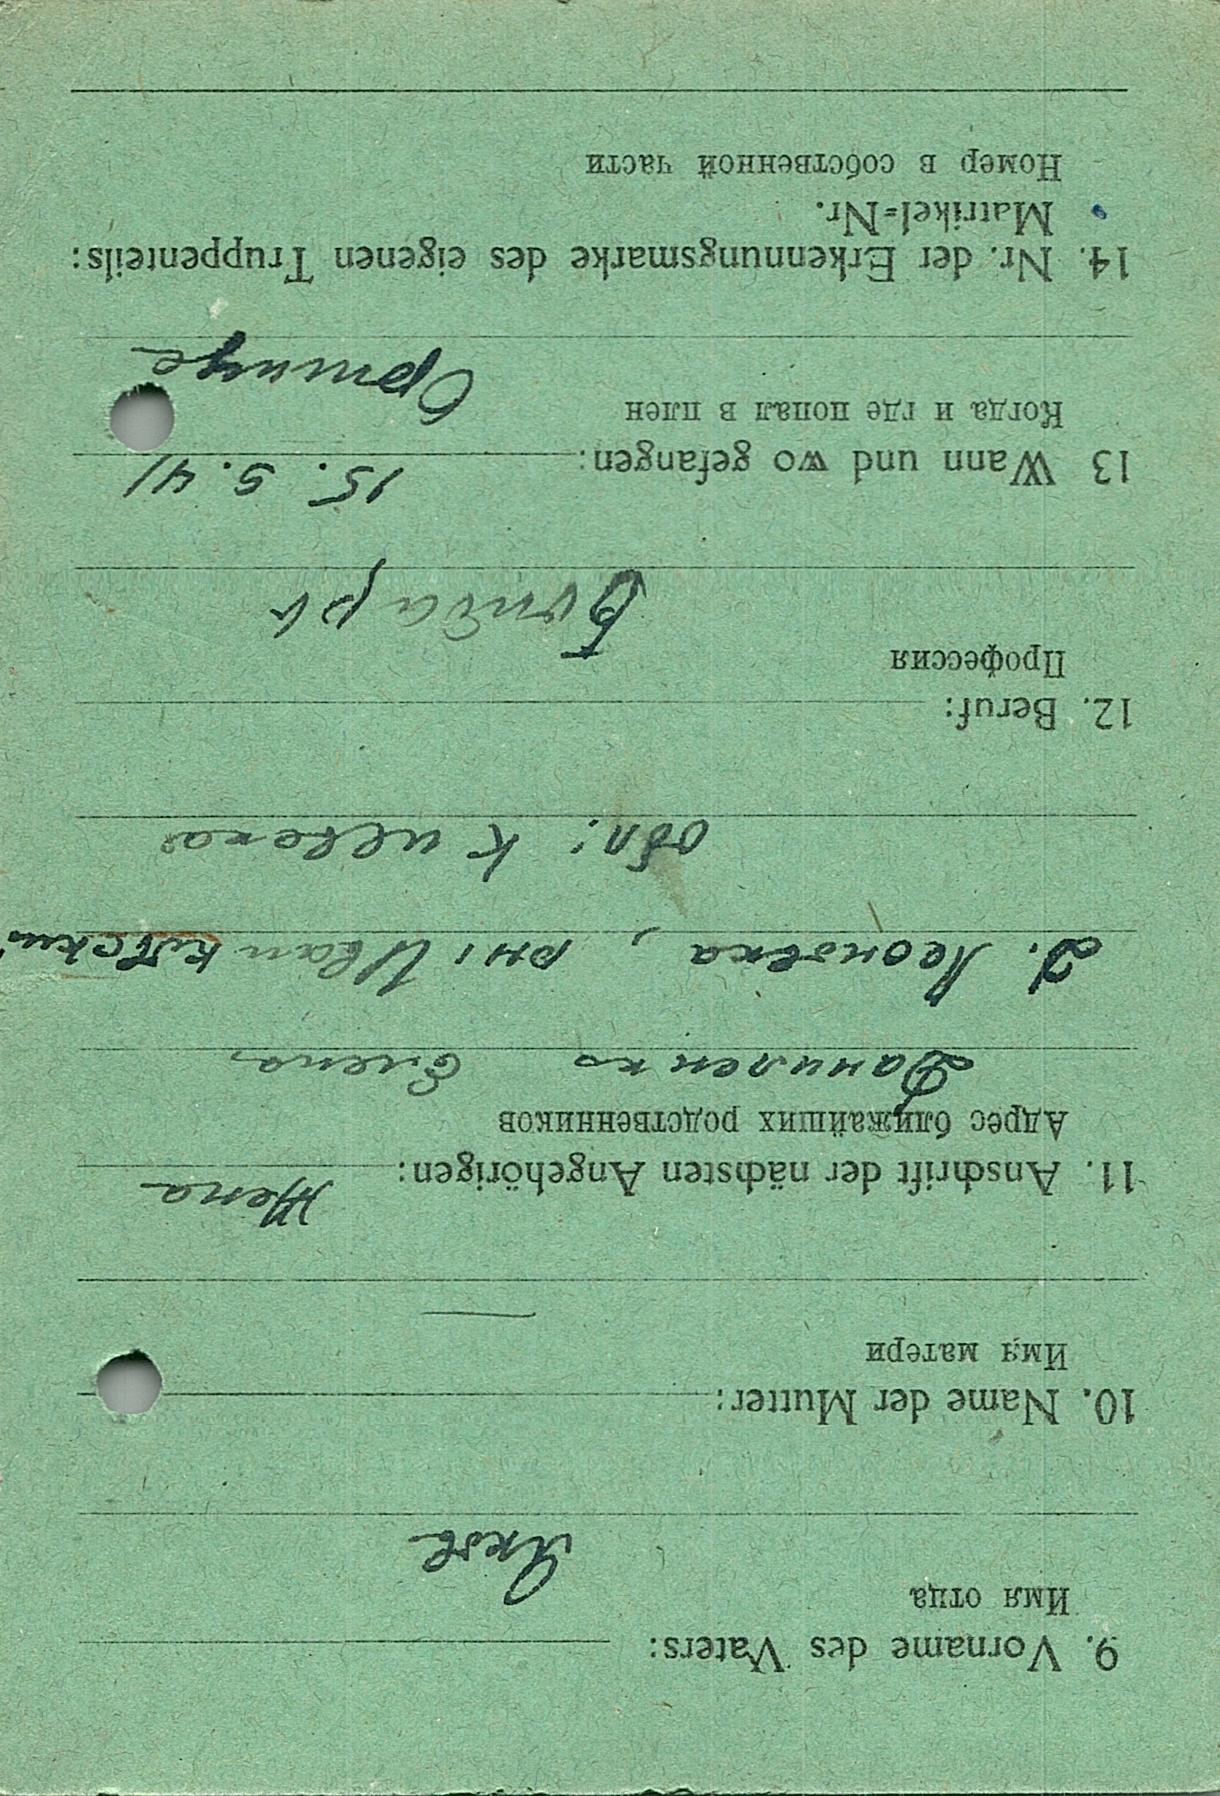 9. Vorname des Vaters:
Имя отца
Яков
10. Name der Mutter:
Имя матери
11. Anschrift der nächsten Angehörigen: Жена
Адрес ближайших родственников
Даниленко Елена
д. Леоновка, рн: Иванковский
обл: Киевская
12. Beruf:
Профессия
Бондарь
13 Wann und wo gefangen: 15. 9. 41
Когда и где попал в плен
Оржице
14. Nr. der Erkennungsmarke des eigenen Truppenteils:
Matrikel=Nr.
Номер в собственной части